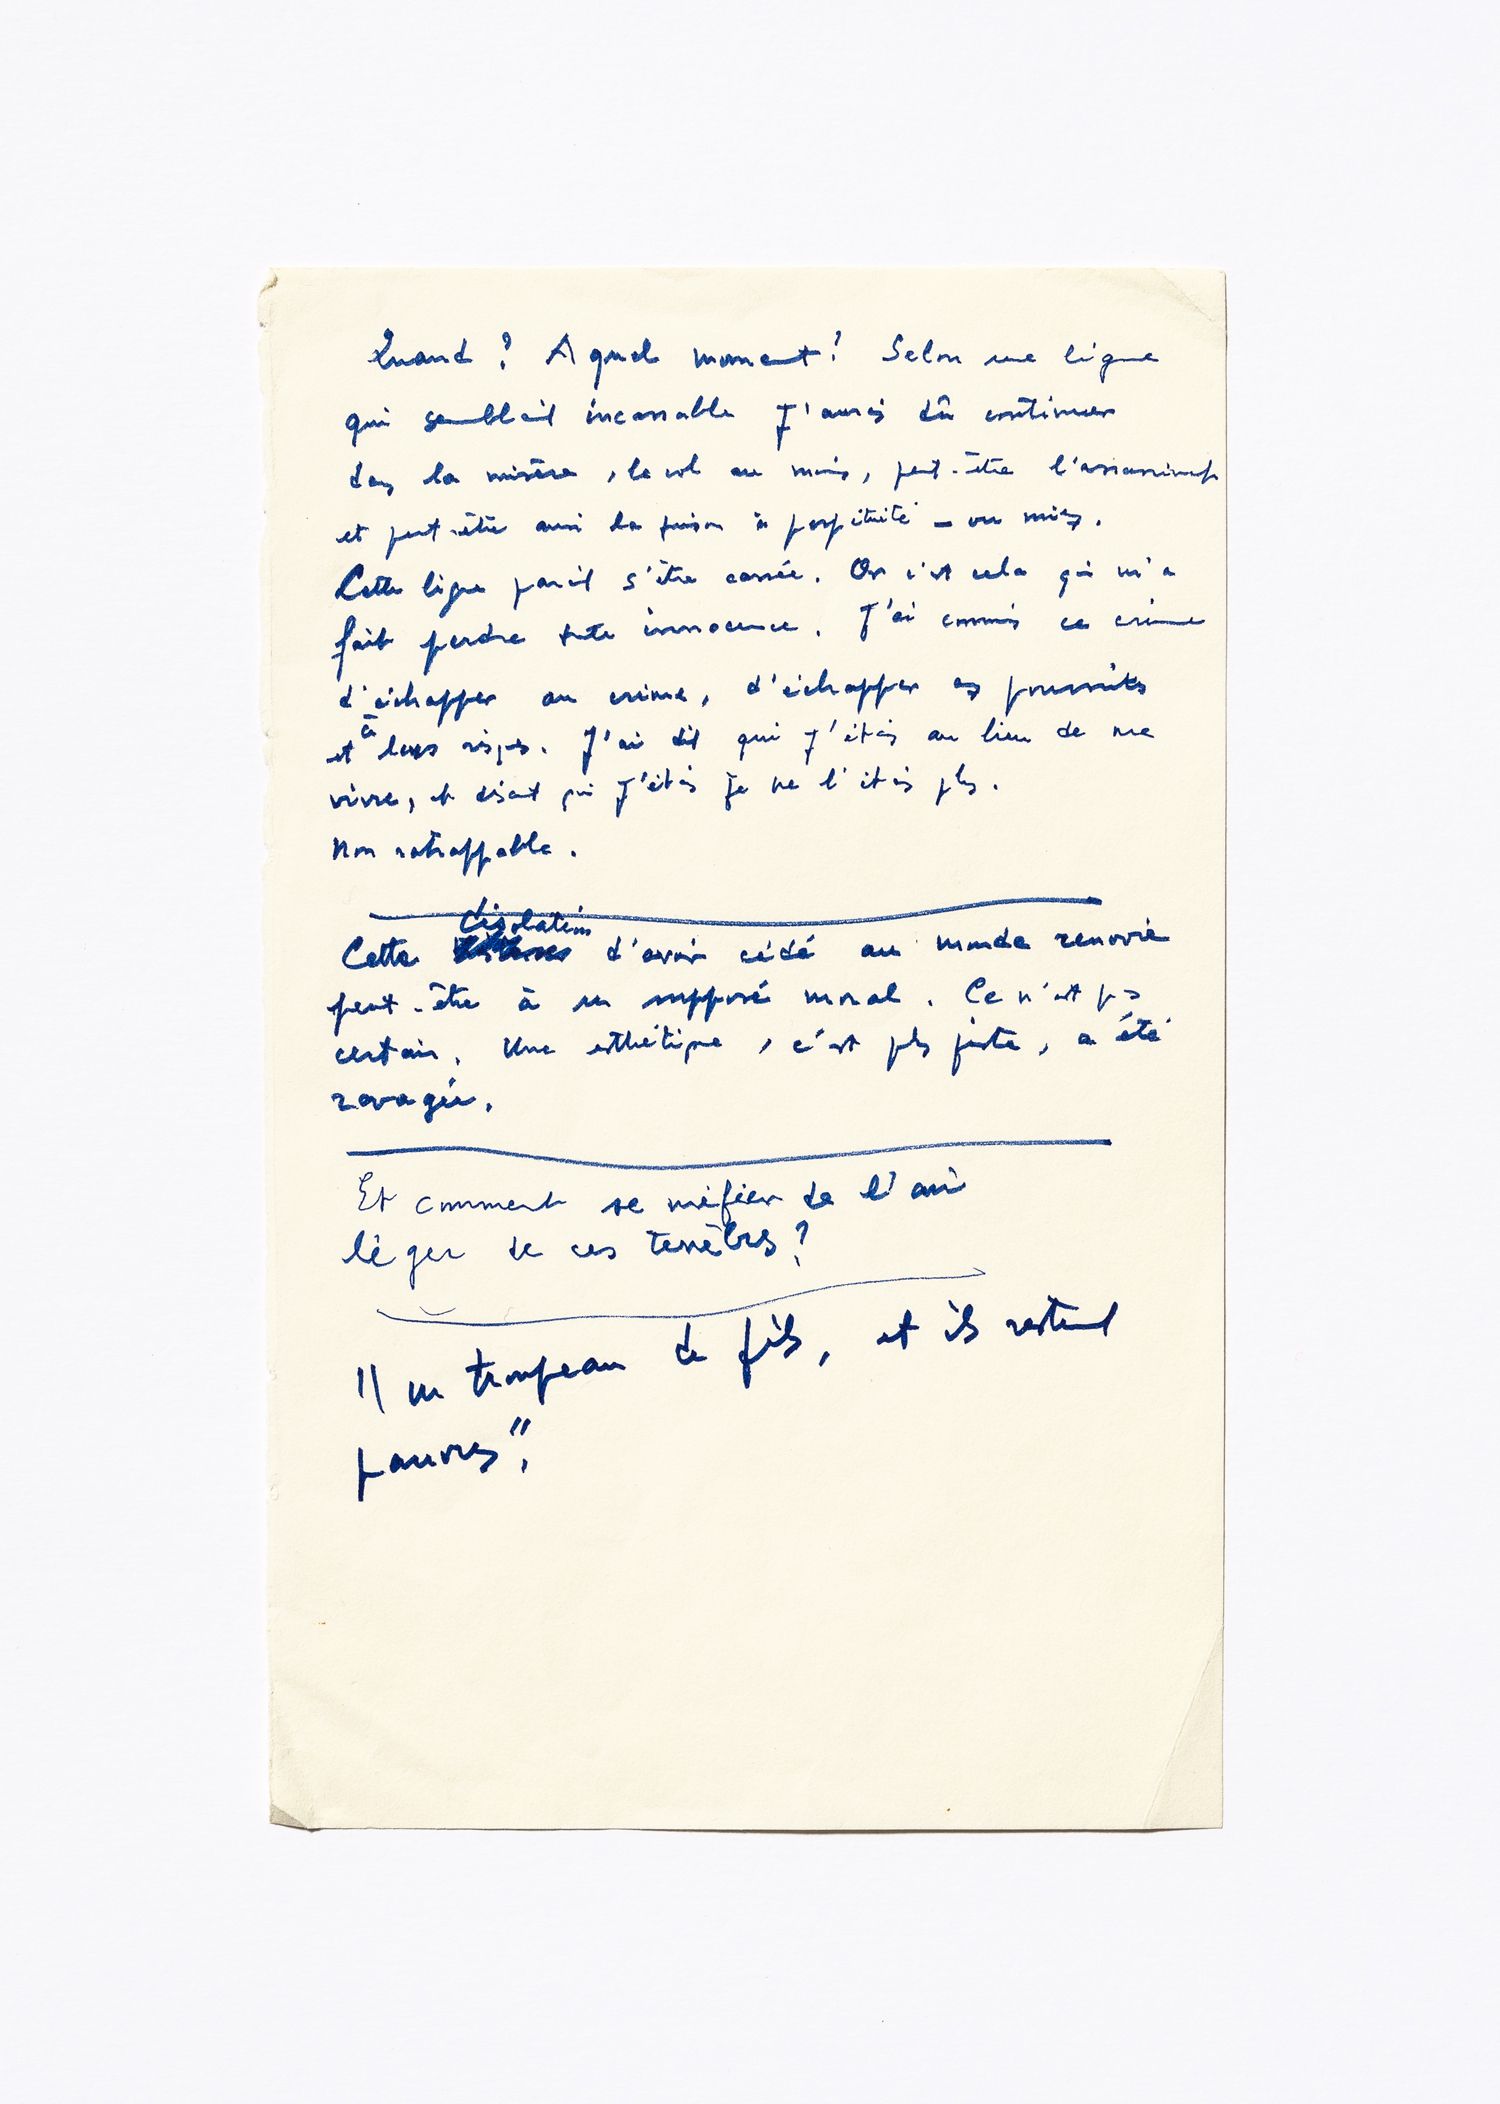 Quand ? A quel moment ? Selon une ligne
qui semblait incassable j'aurais dû continuer
dans la misère, le vol au moins, peut-être l'assassinat
et peut-être aussi la prison à perpétuité – ou mieux.
Cette ligne paraît s'être cassée. Or c'est cela qui m'a
fait perdre toute innocence. J'ai commis ce crime
d'échapper au crime, d'échapper aux poursuites
et à leurs risques. J'ai dit qui j'étais au lieu de me
vivre, et disant qui j'étais je ne l'étais plus.
Non rattrappable.
Cette désolation d'avoir cédé au monde renvoie
peut-être à un supposé moral. Ce n'est pas
certain. Une esthétique, c'est plus juste, a été
ravagée.
Et comment se méfier de l'air
léger de ces ténèbres ?
"un troupeau de fils, et ils restent
pauvres".